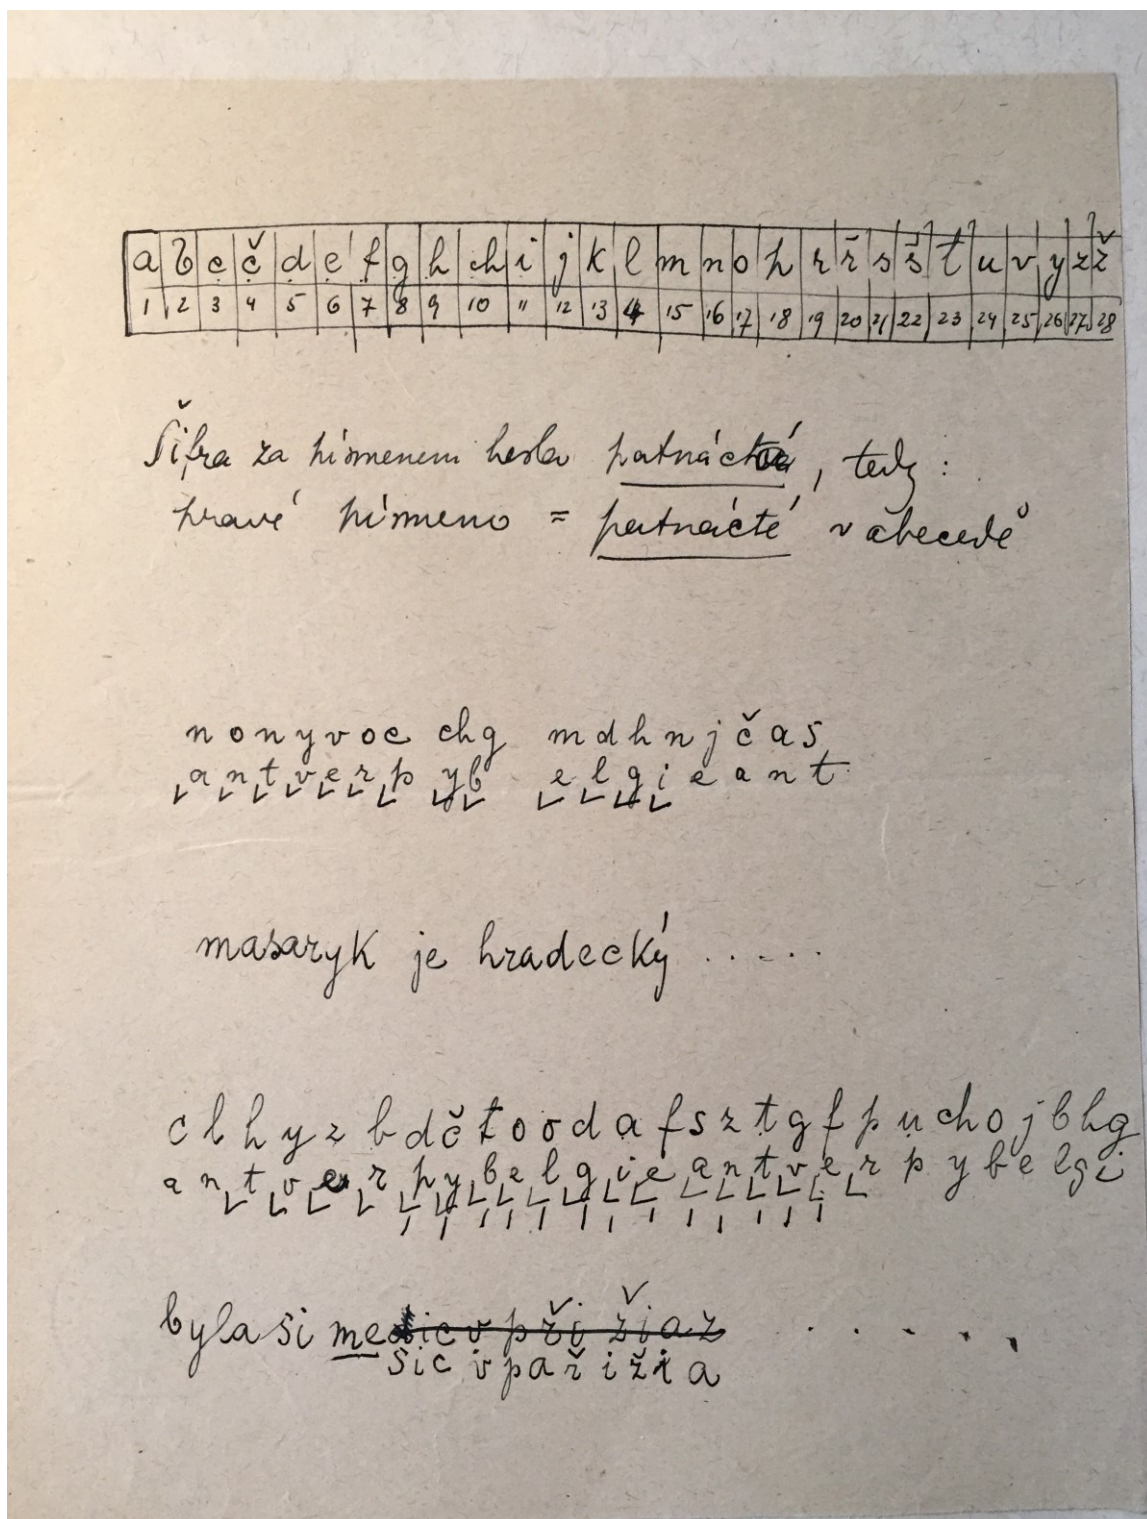 a b c č d e f g h ch i j k l m n o p r ř s š t u v y z ž
1 2 3 4 5 6 7 8 9 10 11 12 13 14 15 16 17 18 19 20 21 22 23 24 25 26 27 28
Šifra za písmenem hesla patnáctá, tedy :
pravé písmeno = patnácté v abecedě
n o n y v o c ch g m d h n j č a s
a n t v e r p y b e l g i e a n t
masaryk je hradecký . . . . .
c l h y z b d č t o o d a f s z t g f p u ch o j b h g
a n t v e r p y b e l g i e a n t v e r p y b e l g i
byla si me
šic v paříži a